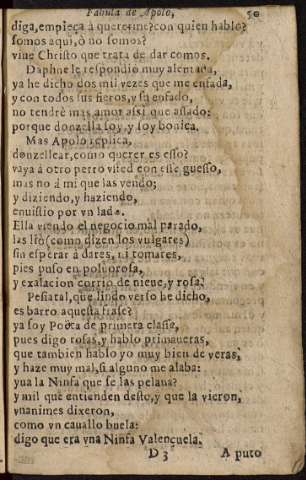 Fabula de Apolo, 50
diga, empieça à quererme? con quien hablo?
somos aqui, ò no somos?
viue Christo que trata de dar comos.
Daphne le respondiò muy alentada,
ya he dicho dos mil vezes que me enfada,
y con todos sus fieros, y su enfado,
no tendrè mas amor assi que assado:
porque donzella soy, y soy bonica.
Mas Apolo replica,
donzellear, como querer es esso?
vaya à otro perro vsted con este guesso,
mas no à mi que las vendo;
y diziendo, y haziendo,
enuistio por vn lado.
Ella viendo el negocio mal parado,
las liò (como dizen los vulgares)
sin esperar à dares, ni tomares,
pies puso en poluorosa,
y exalacion corrio de nieue, y rosa.
Pesiatal, que lindo verso he dicho,
es barro aquesta frase?
ya soy Poeta de primera classe,
pues digo rosas, y hablo primaueras,
que tambien hablo yo muy bien de veras,
y haze muy mal, si alguno me alaba:
yua la Ninfa que se las pelaua?
y mil que entienden desto, y que la vieron,
vnanimes dixeron,
como vn cauallo buela:
digo que era vna Ninfa Valençuela.
D 3 A puto